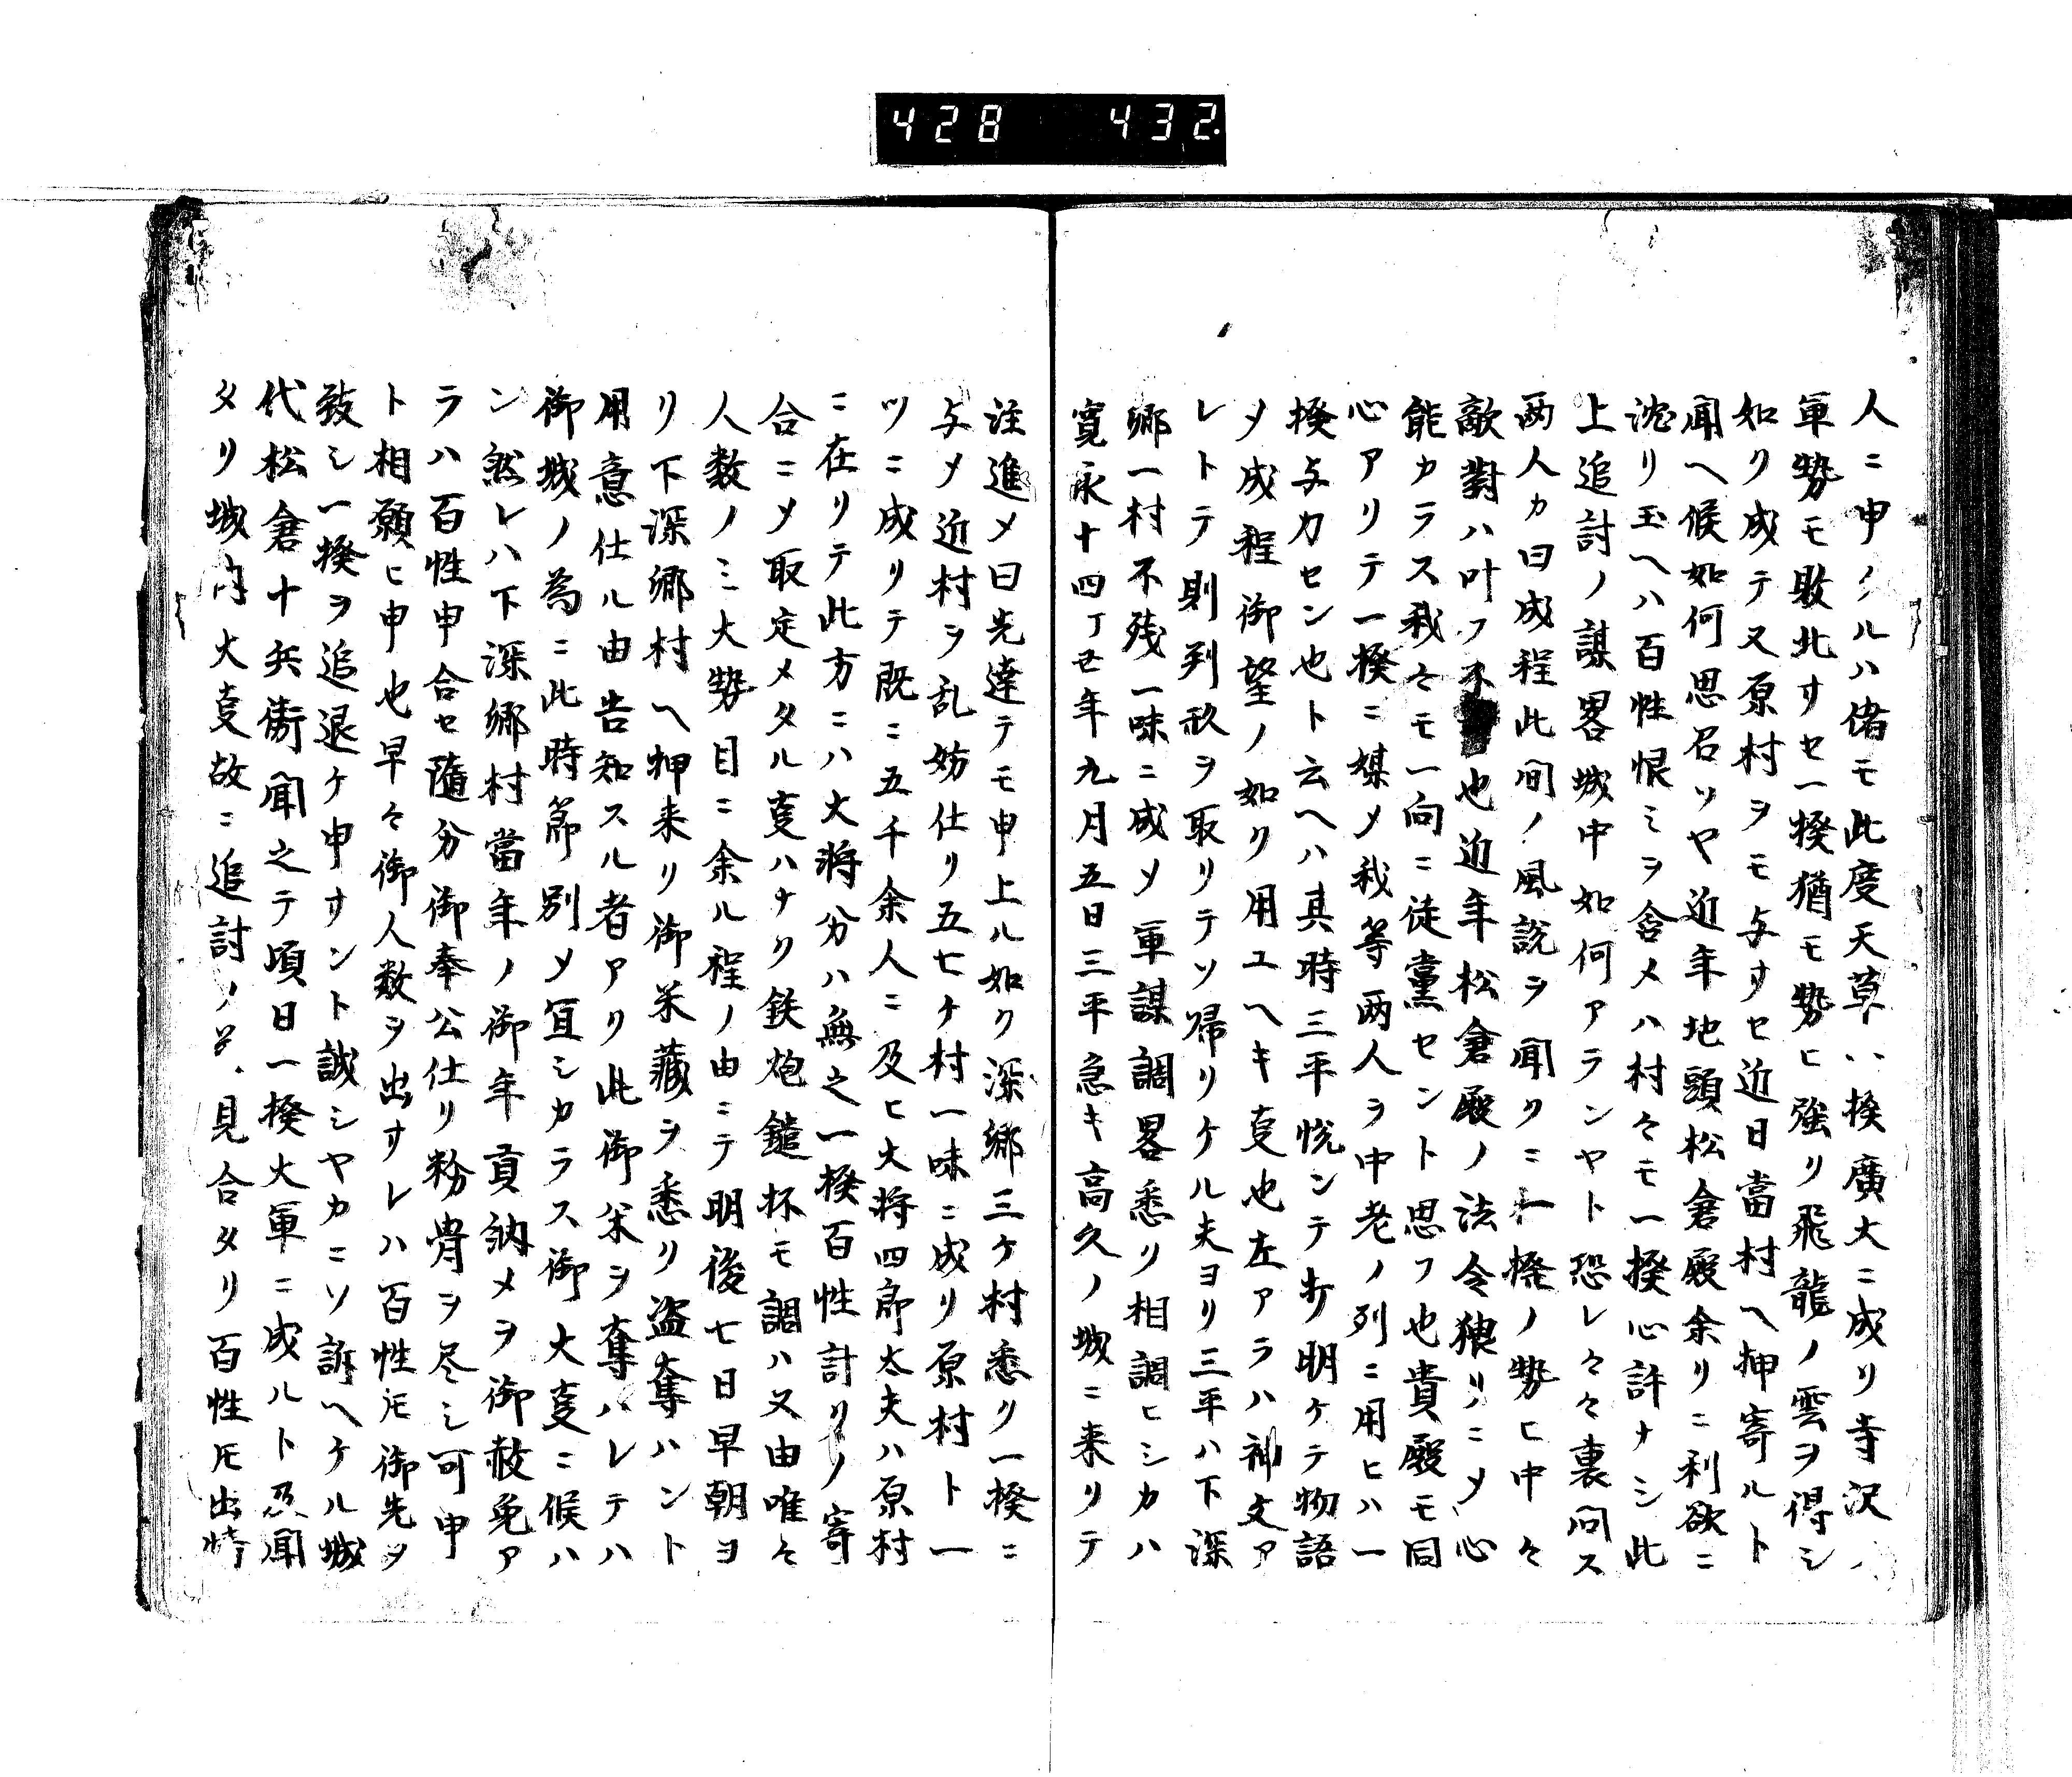 428 432
人ニ申ノルハ偖モ此度天草一揆廣大ニ成リ寺沢ノ
軍勢モ敗北サセ一揆猶モ勢ヒ強リ飛龍ノ雲ヲ得シ
如ク成テ又原村ヲモ与サセ近日當村ヘ押寄ルト
聞ヘ候如何思召ソヤ近年地頭松倉殿余リニ利欲ニ
沈リ玉ヘハ百性恨ミヲ含メハ村々モ一揆心許ナシ此
上追討ノ謀畧城中如何アランヤト恐レ々々裏問ス
両人カ曰成程此间ノ風説ヲ聞クニ一揆ノ勢ヒ中々
敵對ハ叶フ不也近年松倉殿ノ法令猥リニメ心
能カラス我々モ一向ニ徒黨セント思フ也貴殿モ同
心アリテ一揆ニ媒メ我等両人ヲ中老ノ列ニ用ヒハ一
揆与力セン也ト云ヘハ其時三平悦ンテ打明ケテ物語
メ成程御望ノ如ク用ユヘキ叓也左アラハ神文ア
レトテ則判形ヲ取リテソ帰リケル夫ヨリ三平ハ下深
郷一村不残一味ニ成メ軍謀調畧悉ク相調ヒシカハ
寛永十四丁丑年九月五日三平急キ高久ノ城ニ来リテ
注進メ曰先達テモ申上ル如ク深郷三ケ村悉ク一揆ニ
与メ近村ヲ乱妨仕リ五七ケ村一味ニ成リ原村ト一
ツニ成リテ既ニ五千余人ニ及ヒ大将四郎太夫ハ原村
ニ在リテ此方ニハ大将分ハ無之一揆百性計リノ寄
合ニメ取定メタル叓ハナク鉄炮鑓杯モ調ハ又由唯々
人数ノミ大勢目ニ余ル程ノ由ニテ明後七日早朝ヨ
リ下深郷村ヘ押来リ御米藏ヲ悉ク盗奪ハント
用意仕ル由告知スル者アリ此御米ヲ奪ハレテハ
御城ノ為ニ此時節別メ冝シカラス御大叓ニ候ハ
ン然レハ下深郷村當年ノ御年貢納メヲ御赦免ア
ラハ百性申合セ隨分御奉公仕リ粉骨ヲ尽シ可申
ト相願ヒ申也早々御人数ヲ出サレハ百性圧御先ヲ
致シ一揆ヲ追退ケ申サント誠シヤカニソ訴ヘケル城
代松倉十兵衛聞之テ頃日一揆大軍ニ成ルト及聞
タリ城内大叓故ニ追討ノ見合タリ百性圧出情